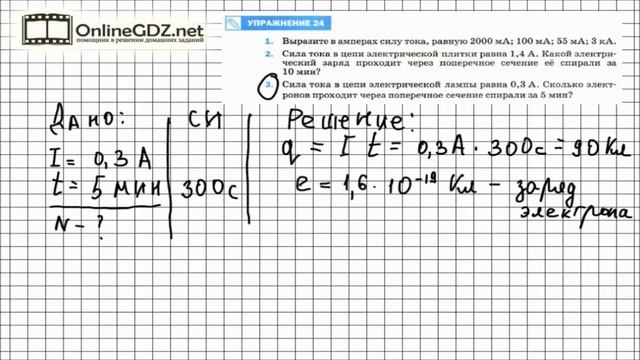 OnlineGDZ.net
помощник в решении домашних заданий
УПРАЖНЕНИЕ 24
1. Выразите в амперах силу тока, равную 2000 мА; 100 мА; 55 мА; 3 кА.
2. Сила тока в цепи электрической плитки равна 1,4 А. Какой электри-
ческий заряд проходит через поперечное сечение её спирали за
10 мин?
3. Сила тока в цепи электрической лампы равна 0,3 А. Сколько элект-
ронов проходит через поперечное сечение спирали за 5 мин?
Дано:
I = 0,3 А
t = 5 мин
N - ?
СИ
300с
Решение:
q = I t = 0,3А · 300с = 90 Кл
e = 1,6 · 10⁻¹⁹ Кл – заряд
электрона